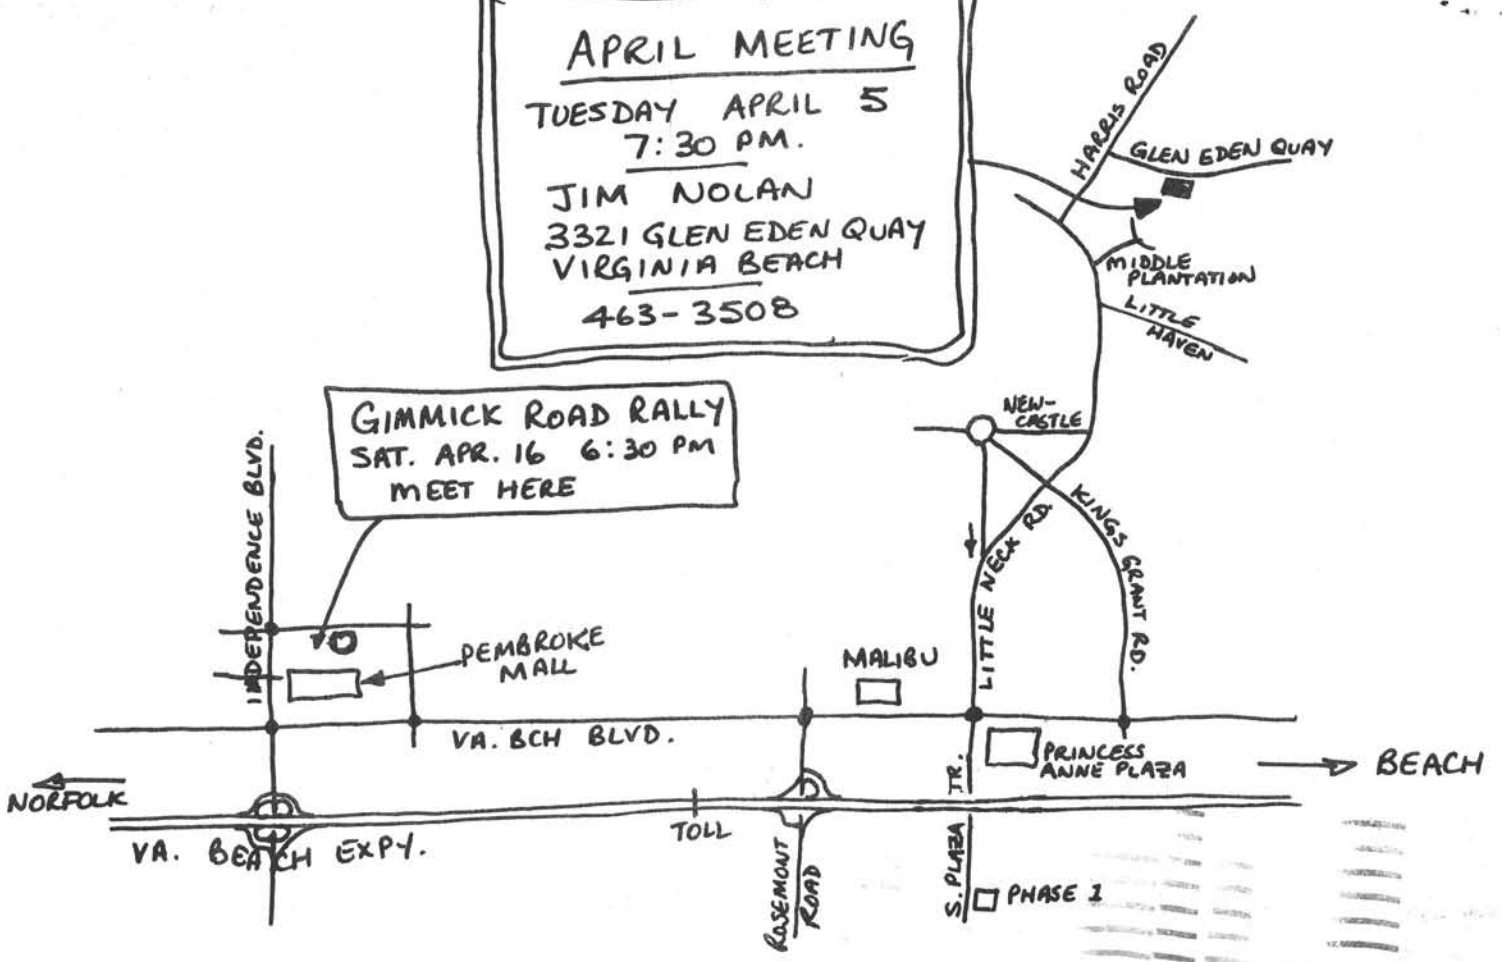 APRIL MEETING
TUESDAY APRIL 5
7:30 PM.
JIM NOLAN
3321 GLEN EDEN QUAY
VIRGINIA BEACH
463-3508
HARRIS ROAD
GLEN EDEN QUAY
MIDDLE
PLANTATION
LITTLE
HAVEN
GIMMICK ROAD RALLY
SAT. APR. 16 6:30 PM
MEET HERE
NEW-
CASTLE
INDEPENDENCE BLVD.
KINGS GRANT RD.
LITTLE NECK RD.
PEMBROKE
MALL
MALIBU
VA. BCH BLVD.
PRINCESS
ANNE PLAZA
BEACH
NORFOLK
VA. BEACH EXPY.
TOLL
ROSEMONT
ROAD
S. PLAZA TR.
PHASE 1